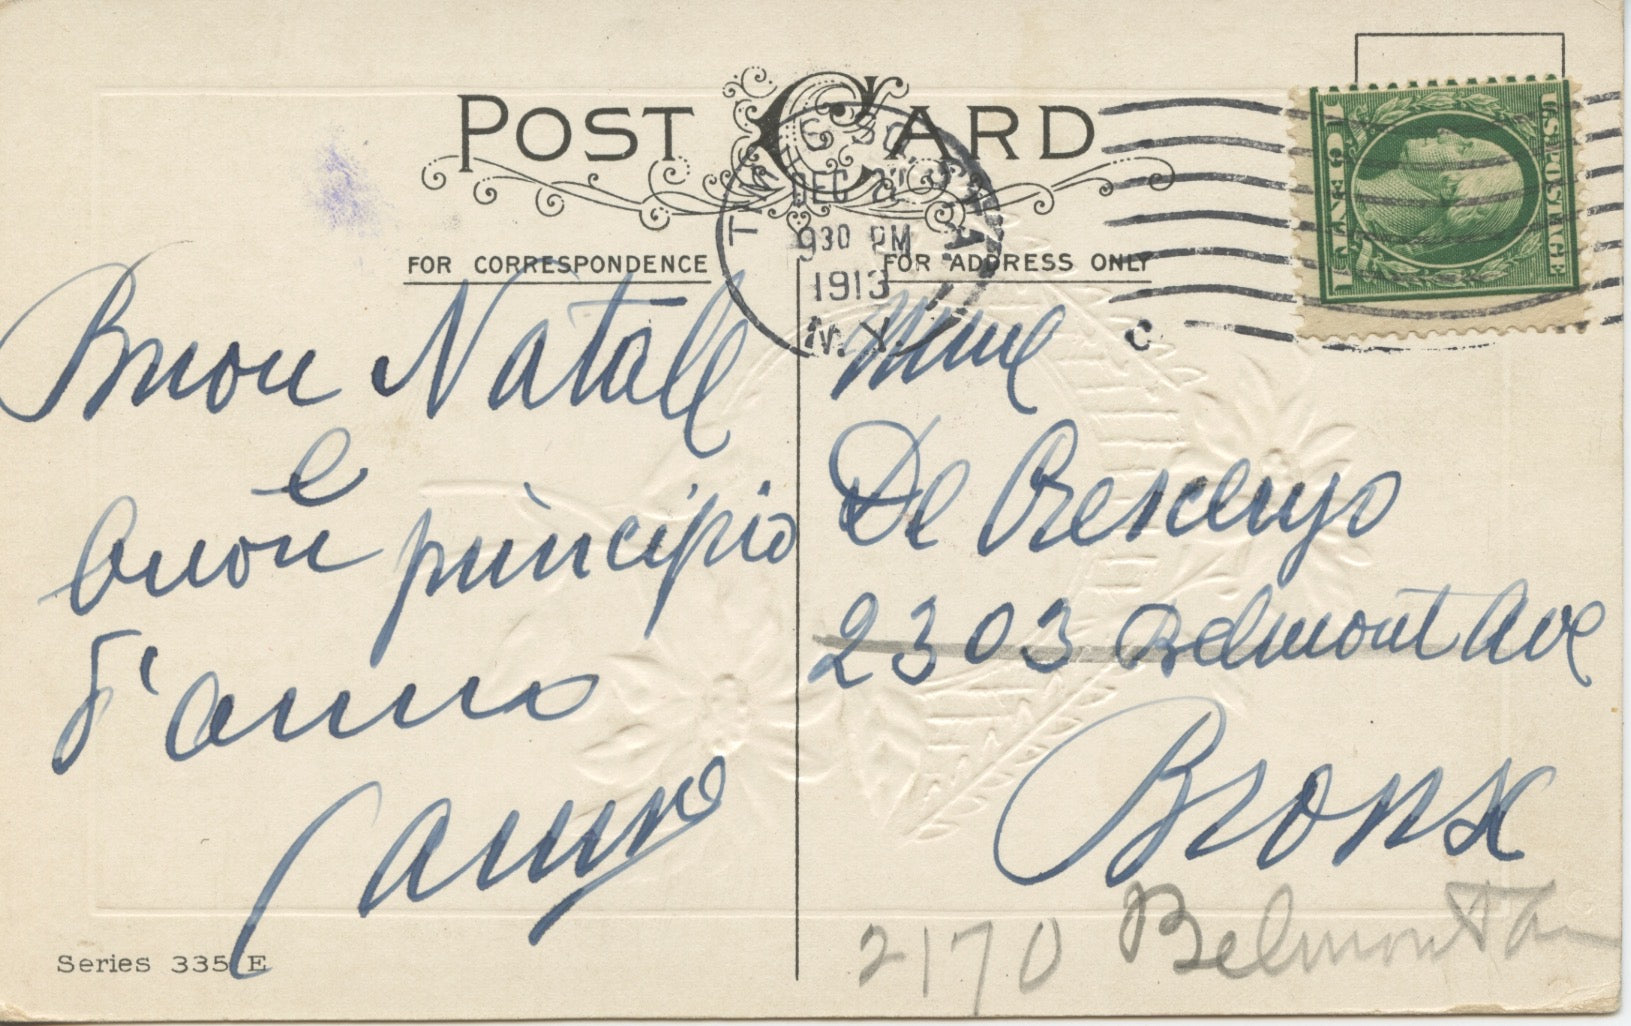 POST CARD
DEC 2
930 PM
1913
N.Y.
C
U.S. POSTAGE
1 CENT 1
FOR CORRESPONDENCE
FOR ADDRESS ONLY
Buon Natale
e
buon principio
d'anno
Mme
De Crescenzo
2303 Belmont Ave
Bronx
2170 Belmont Av
Series 335 E